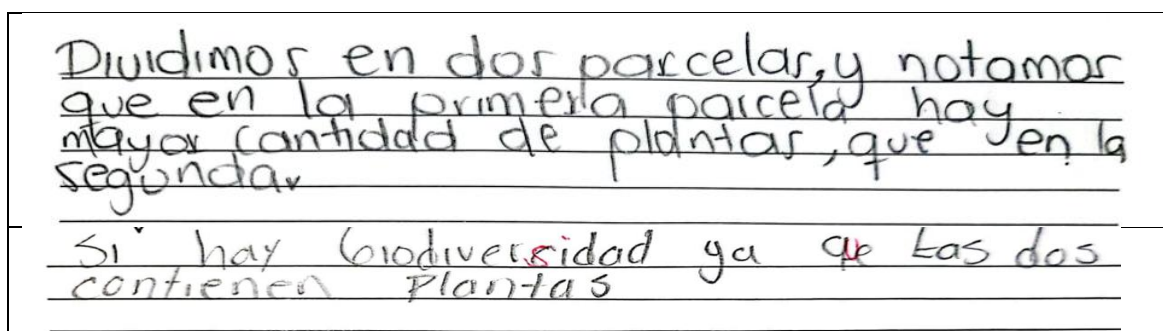 Dividimos en dos parcelas, y notamos
que en la primera parcela hay
mayor cantidad de plantas, que en la
segunda.
Si hay biodiversidad ya qe las dos
contienen Plantas